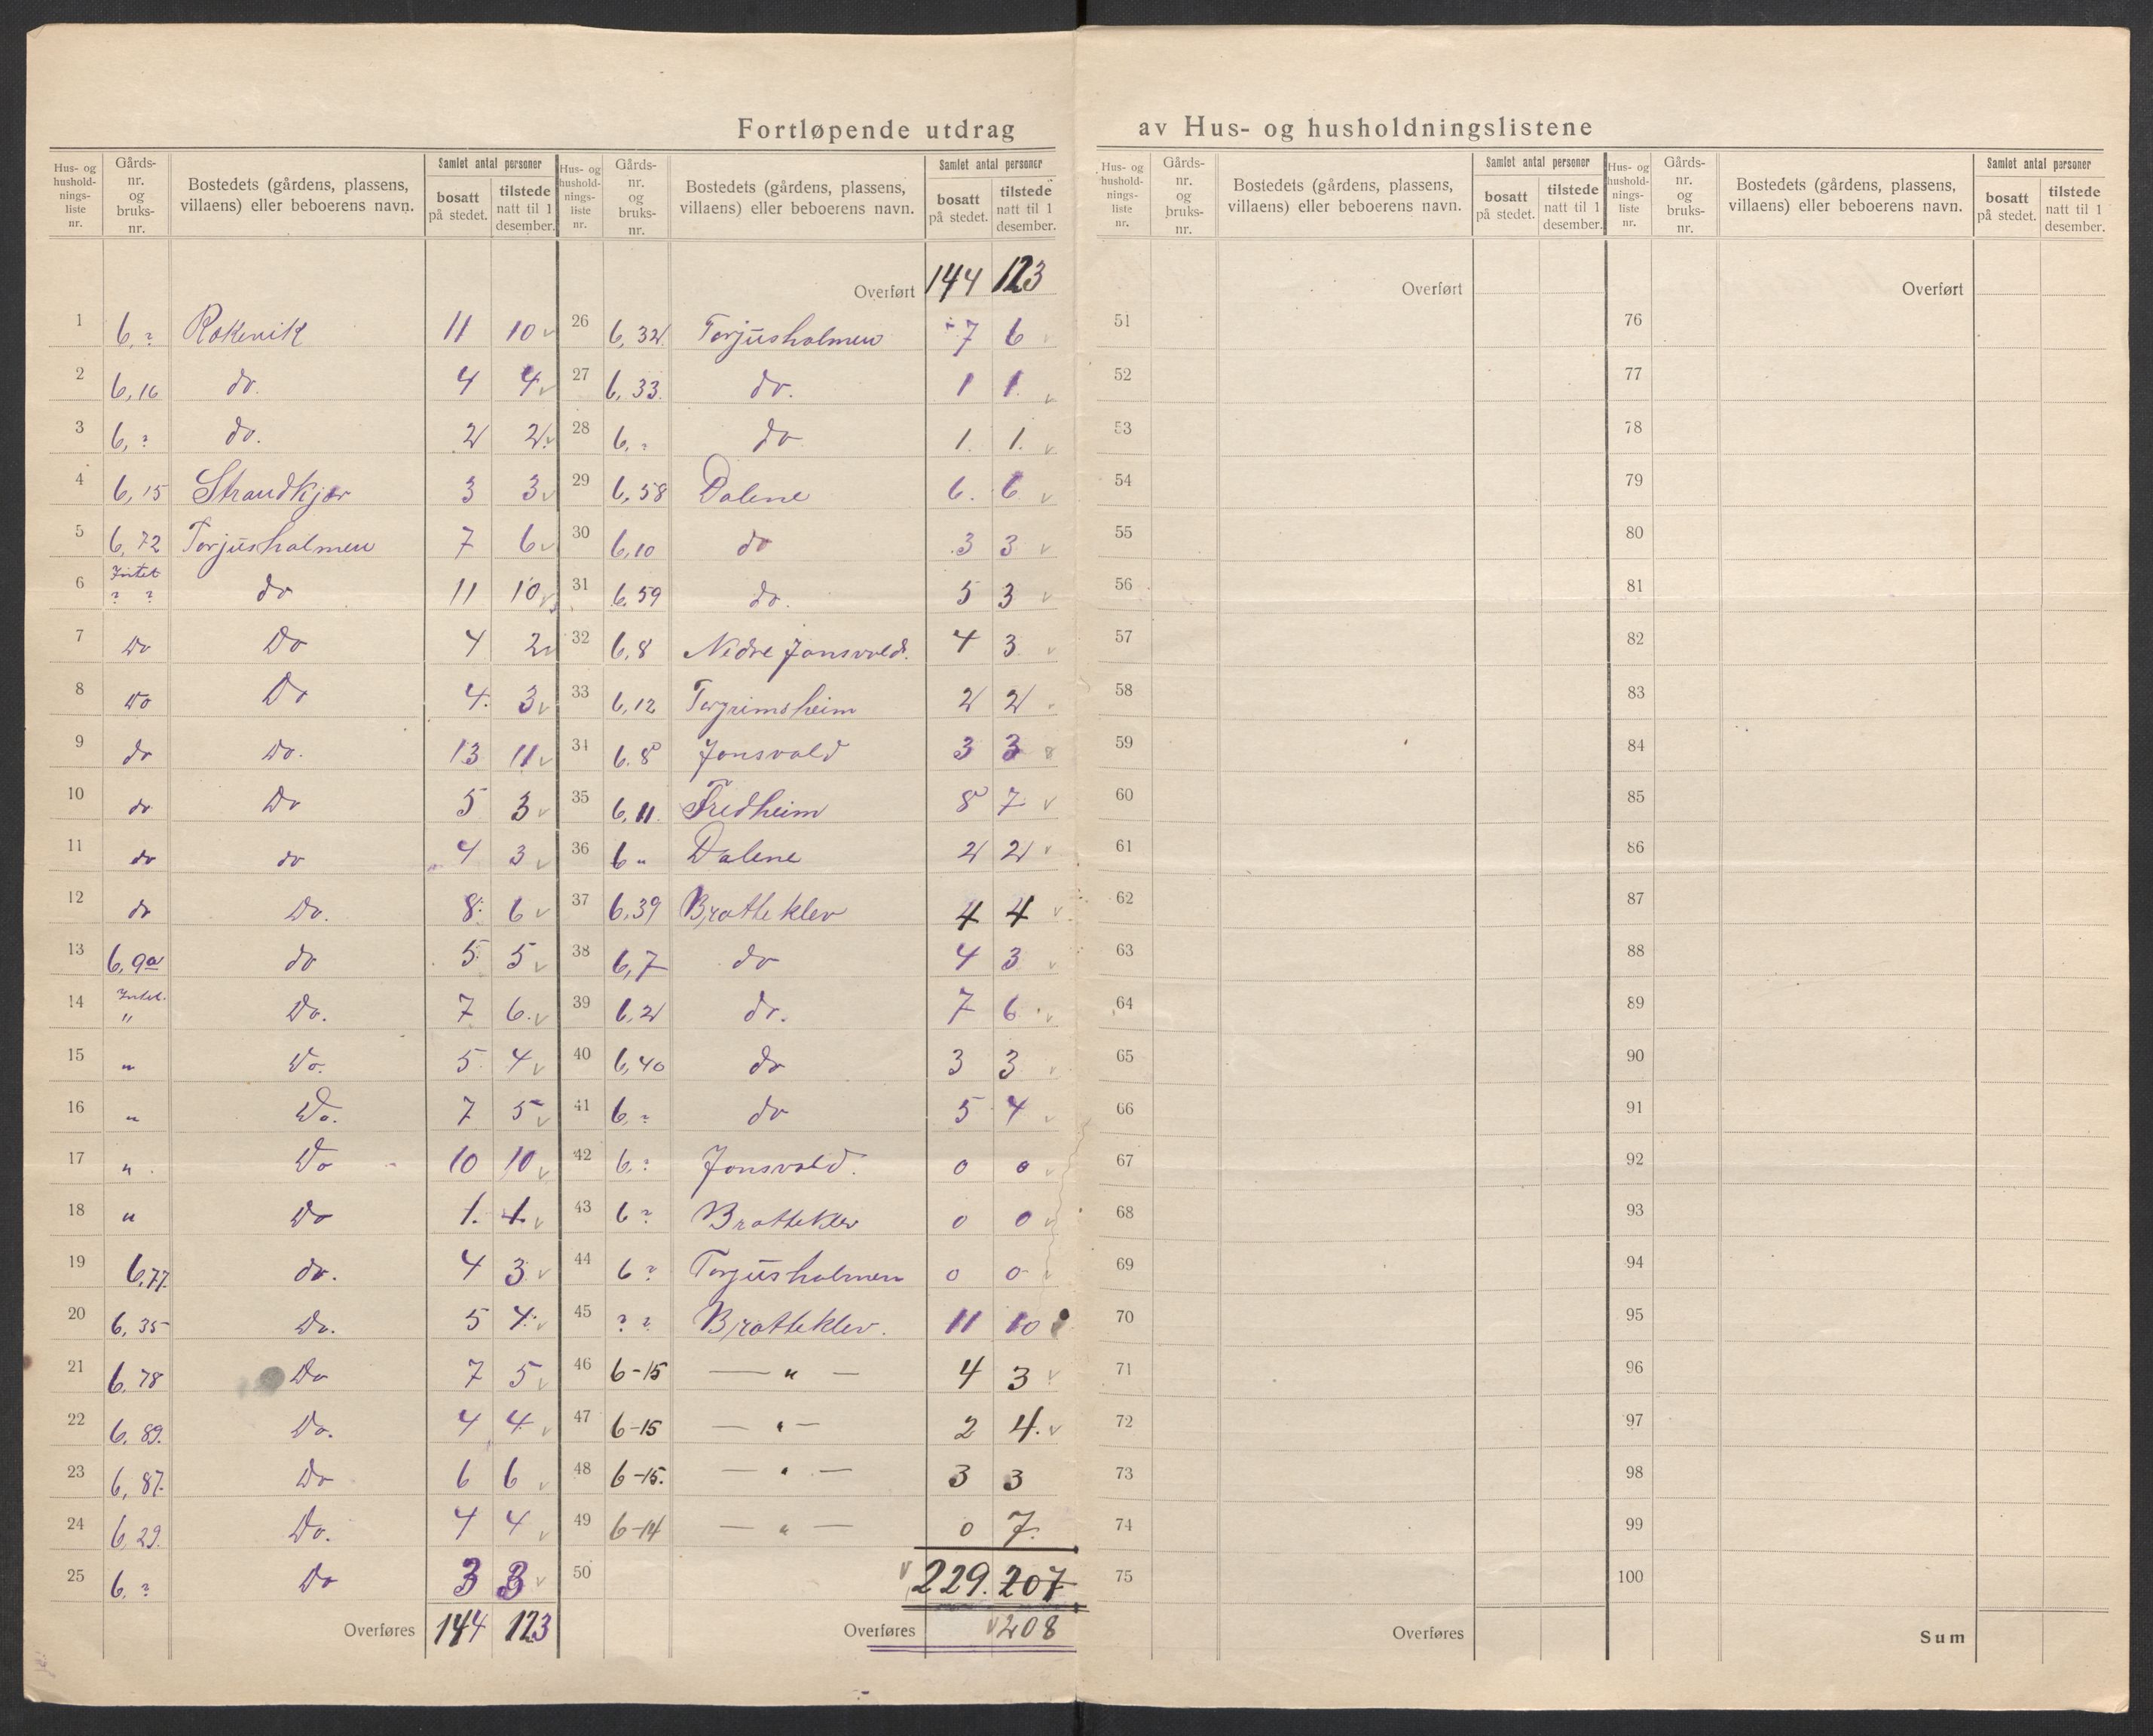 Fortløpende utdrag av Hus- og husholdningslistene
Hus- og hushold- nings- liste nr. | Gårds- nr. og bruks- nr. | Bostedets (gårdens, plassens, villaens) eller beboerens navn. | Samlet antal personer | bosatt på stedet. | tilstede natt til 1 desember.
1 | 6,? | Rakenik | 11 | 10 v
2 | 6,16 | do. | 4 | 4 v
3 | 6,? | do. | 2 | 2. v
4 | 6,15 | Strandkjær | 3 | 3 v
5 | 6,72 | Torjusholmen | 7 | 6 v
6 | Intet ? ? | do | 11 | 10 v
7 | Do | Do | 4 | 2 v
8 | Do | Do | 4. | 3 v
9 | do | Do. | 13 | 11 v
10 | do | Do | 5 | 3 v
11 | do | do | 4 | 3 v
12 | do | Do. | 8. | 6 v
13 | 6,9a | do | 5 | 5 v
14 | Intet. " | Do. | 7 | 6. v
15 | " | Do. | 5 | 4 v
16 | " | Do. | 7 | 5 v
17 | " | Do | 10 | 10 v
18 | " | Do | 1. | 1. v
19 | 6,77. | do. | 4 | 3 v
20 | 6,35 | Do. | 5 | 4. v
21 | 6,78 | Do | 7 | 5 v
22 | 6,89. | Do. | 4 | 4 v
23 | 6,87. | Do | 6 | 6 v
24 | 6,29. | Do. | 4 | 4 v
25 | 6,? | Do | 3 | 3 v
Overføres 144 123
Hus- og hushold- nings- liste nr. | Gårds- nr. og bruks- nr. | Bostedets (gårdens, plassens, villaens) eller beboerens navn. | Samlet antal personer | bosatt på stedet. | tilstede natt til 1 desember.
Overført 144 123
26 | 6,32. | Torjusholmen | 7 | 6
27 | 6,33. | do. | 1 | 1. v
28 | 6,? | do | 1. | 1. v
29 | 6,58 | Dalene | 6. | 6 v
30 | 6,10 | do | 3 | 3 v
31 | 6.59 | do. | 5 | 3 v
32 | 6,8 | Nedre Jonsvold. | 4 | 3 v
33 | 6,12 | Torgrimsheim | 2 | 2 v
34 | 6.8 | Jonsvold | 3 | 3
35 | 6,11. | Fredheim | 8 | 7 v
36 | 6 " | Dalene | 2 | 2 v
37 | 6,39 | Bratteklev | 4 | 4 v
38 | 6,7 | do | 4 | 3 v
39 | 6,2 | do. | 7 | 6 v
40 | 6,40 | do | 3 | 3 v
41 | 6,? | do | 5 | 4 v
42 | 6,? | Jonsvold. | 0 | 0 v
43 | 6 ? | Bratteklev | 0 | 0 v
44 | 6 ? | Torjusholmen | 0 | 0 v
45 | ? ? | Bratteklev. | 11 | 10
46 | 6-15 | — " — | 4 | 3 v
47 | 6-15 | — " — | 2 | 4. v
48 | 6-15. | — " — | 3 | 3
49 | 6-14 | — " — | 0 | 7.
50 | v 229. 207
Overføres v 208
Hus- og hushold- nings- liste nr. | Gårds- nr. og bruks- nr. | Bostedets (gårdens, plassens, villaens) eller beboerens navn. | Samlet antal personer | bosatt på stedet. | tilstede natt til 1 desember.
Overført
51
52
53
54
55
56
57
58
59
60
61
62
63
64
65
66
67
68
69
70
71
72
73
74
75
Overføres
Hus- og hushold- nings- liste nr. | Gårds- nr. og bruks- nr. | Bostedets (gårdens, plassens, villaens) eller beboerens navn. | Samlet antal personer | bosatt på stedet. | tilstede natt til 1 desember.
Overført
76
77
78
79
80
81
82
83
84
85
86
87
88
89
90
91
92
93
94
95
96
97
98
99
100
Sum